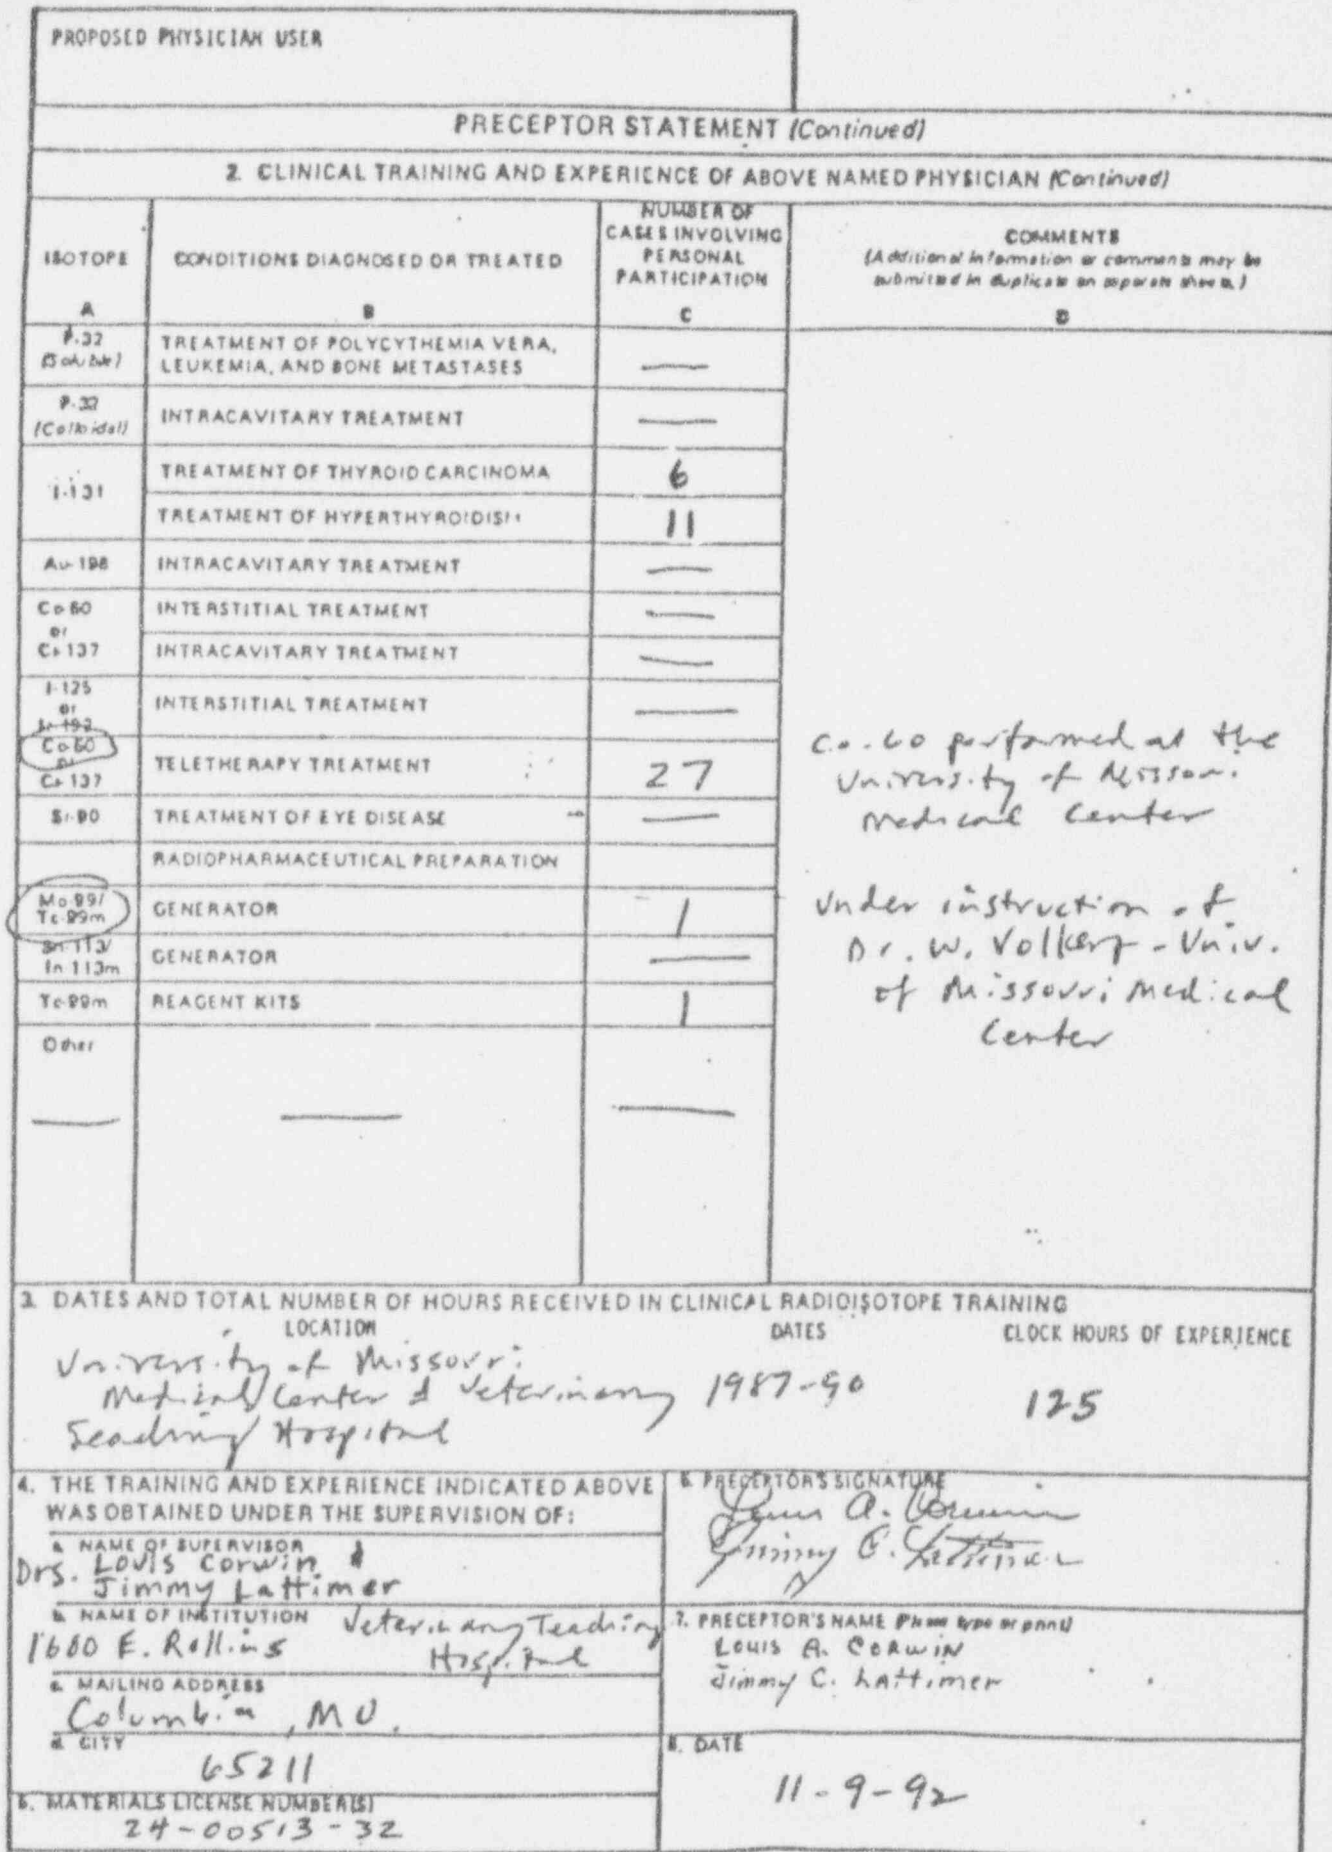 PROPOSED PHYSICIAN USER
PRECEPTOR STATEMENT (Continued)
2. CLINICAL TRAINING AND EXPERIENCE OF ABOVE NAMED PHYSICIAN (Continued)
ISOTOPE
A
CONDITIONS DIAGNOSED OR TREATED
B
NUMBER OF
CASES INVOLVING
PERSONAL
PARTICIPATION
C
COMMENTS
(Additional information or comments may be
submitted in duplicate on separate sheets.)
D
P-32
(Soluble)
TREATMENT OF POLYCYTHEMIA VERA,
LEUKEMIA, AND BONE METASTASES
—
P-32
(Colloidal)
INTRACAVITARY TREATMENT
—
I-131
TREATMENT OF THYROID CARCINOMA
6
TREATMENT OF HYPERTHYROIDISM
11
Au-198
INTRACAVITARY TREATMENT
—
Co-60
or
Cs-137
INTERSTITIAL TREATMENT
—
INTRACAVITARY TREATMENT
—
I-125
or
Ir-192
INTERSTITIAL TREATMENT
—
Co-60
or
Cs-137
TELETHERAPY TREATMENT
27
Co-60 performed at the
University of Missouri
Medical Center
Sr-90
TREATMENT OF EYE DISEASE
—
RADIOPHARMACEUTICAL PREPARATION
Mo-99/
Tc-99m
GENERATOR
1
Under instruction of
Dr. W. Volkert - Univ.
of Missouri Medical
Center
Sn-113/
In-113m
GENERATOR
—
Tc-99m
REAGENT KITS
1
Other
—
—
—
3. DATES AND TOTAL NUMBER OF HOURS RECEIVED IN CLINICAL RADIOISOTOPE TRAINING
LOCATION DATES CLOCK HOURS OF EXPERIENCE
University of Missouri
Medical Center & Veterinary 1987-90 125
Teaching Hospital
4. THE TRAINING AND EXPERIENCE INDICATED ABOVE
WAS OBTAINED UNDER THE SUPERVISION OF:
a. NAME OF SUPERVISOR
Drs. Louis Corwin &
Jimmy Lattimer
b. NAME OF INSTITUTION Veterinary Teaching
1600 E. Rollins Hospital
c. MAILING ADDRESS
Columbia, MO.
d. CITY
65211
5. MATERIALS LICENSE NUMBER(S)
24-00513-32
6. PRECEPTOR'S SIGNATURE
Louis A. Corwin
Jimmy C. Lattimer
7. PRECEPTOR'S NAME (Please type or print)
LOUIS A. CORWIN
Jimmy C. Lattimer
8. DATE
11-9-92